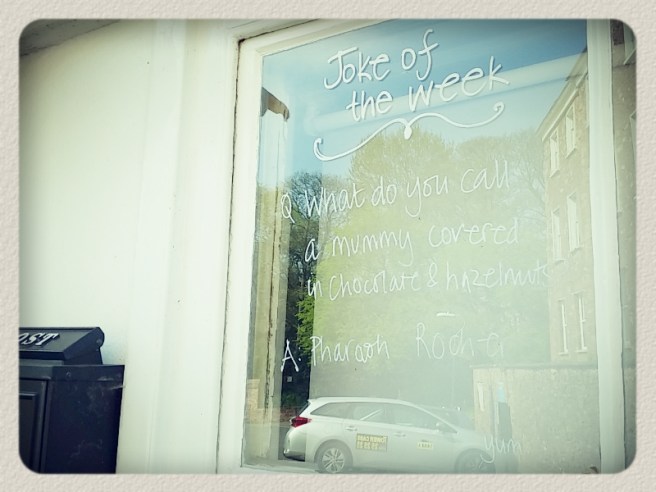 Joke of
the week
Q What do you call
a mummy covered
in chocolate & hazelnuts
A: Pharaoh Roch-er
yum